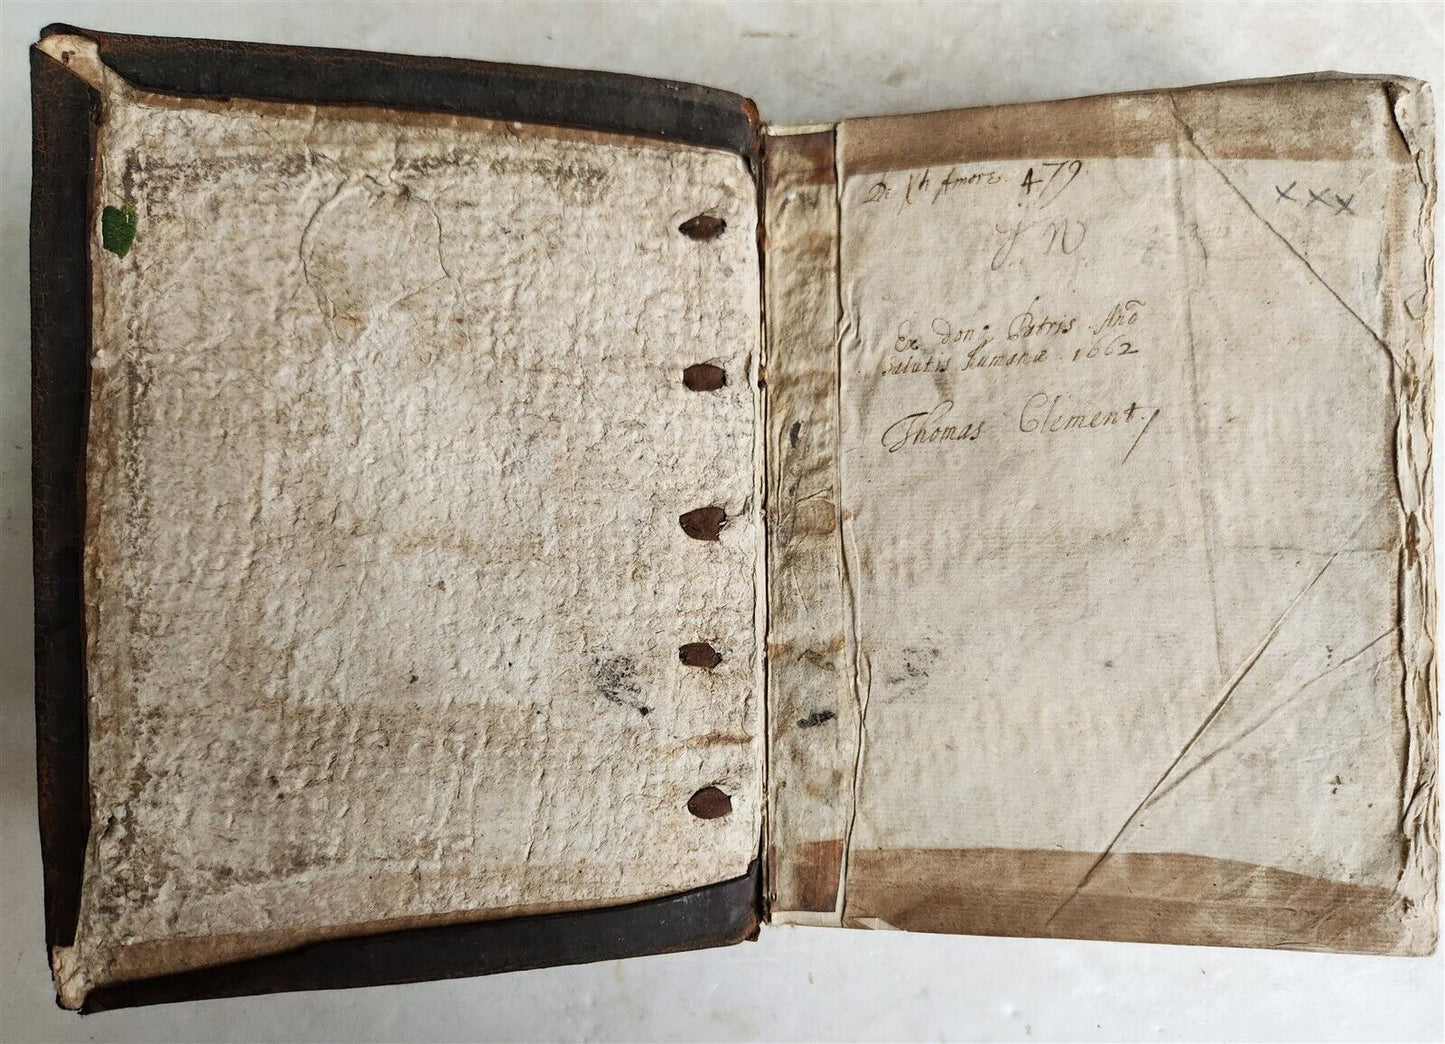 De Xti Amore. 479
× × ×
J N
Ex don; Patris. Anõ
Salutis humanæ. 1662
Thomas Clement,